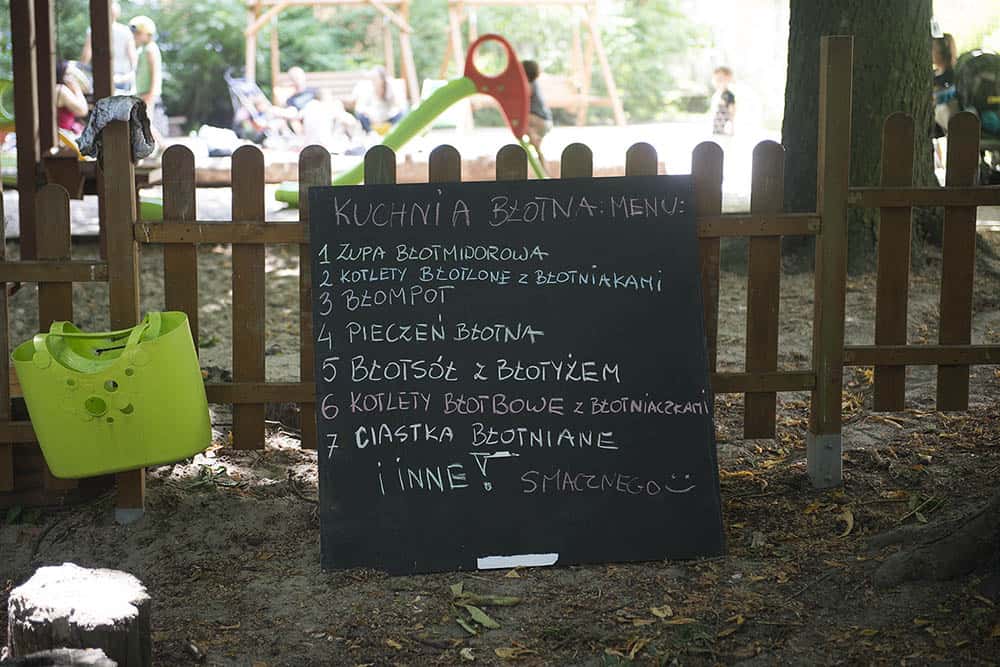 KUCHNIA BŁOTNA: MENU:
1 ZUPA BŁOTMIDOROWA
2 KOTLETY BŁOTLONE Z BŁOTNIAKAMI
3 BŁOMPOT
4 PIECZEŃ BŁOTNA
5 BŁOTSÓŁ Z BŁOTYŻEM
6 KOTLETY BŁOTBOWE Z BŁOTNIACZKAMI
7 CIASTKA BŁOTNIANE
I INNE! SMACZNEGO :)